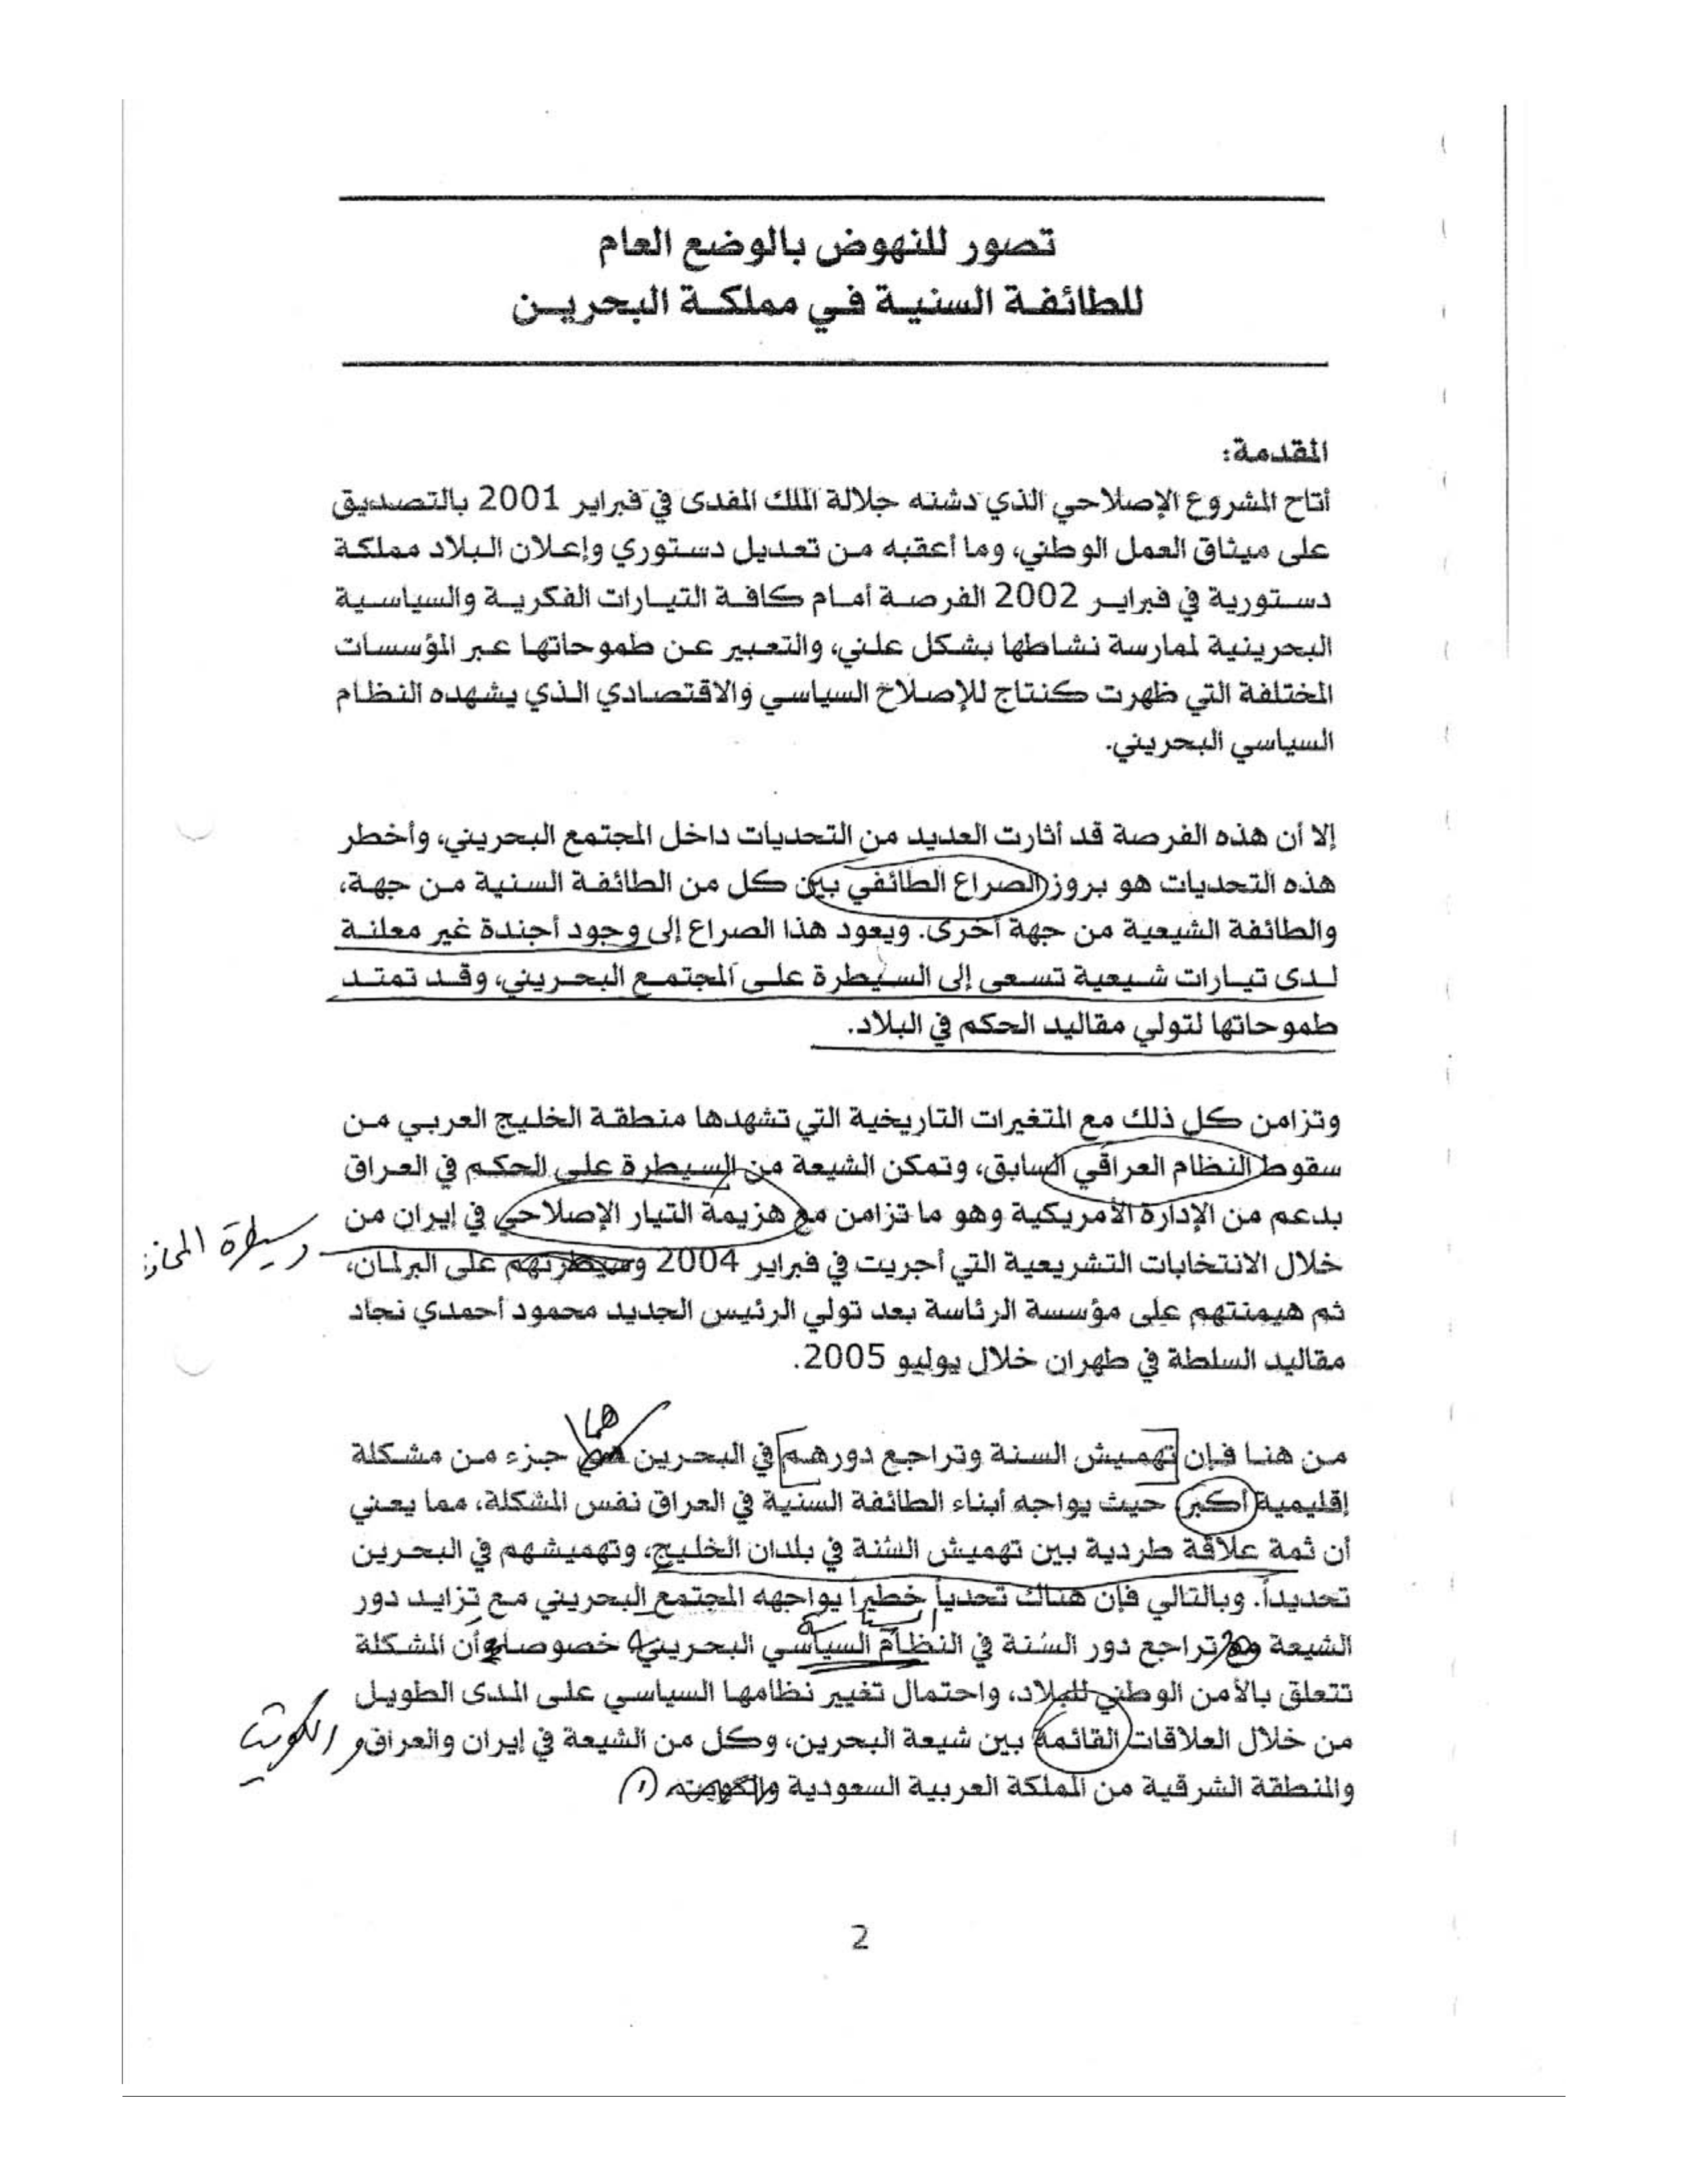 تصور للنهوض بالوضع العام
للطائفة السنية في مملكة البحرين
المقدمة:
أتاح المشروع الإصلاحي الذي دشنه جلالة الملك المفدى في فبراير 2001 بالتصديق
على ميثاق العمل الوطني، وما أعقبه من تعديل دستوري وإعلان البلاد مملكة
دستورية في فبراير 2002 الفرصة أمام كافة التيارات الفكرية والسياسية
البحرينية لممارسة نشاطها بشكل علني، والتعبير عن طموحاتها عبر المؤسسات
المختلفة التي ظهرت كنتاج للإصلاح السياسي والاقتصادي الذي يشهده النظام
السياسي البحريني.
إلا أن هذه الفرصة قد أثارت العديد من التحديات داخل المجتمع البحريني، وأخطر
هذه التحديات هو بروز الصراع الطائفي بين كل من الطائفة السنية من جهة،
والطائفة الشيعية من جهة أخرى. ويعود هذا الصراع إلى وجود أجندة غير معلنة
لدى تيارات شيعية تسعى إلى السيطرة على المجتمع البحريني، وقد تمتد
طموحاتها لتولي مقاليد الحكم في البلاد.
وتزامن كل ذلك مع المتغيرات التاريخية التي تشهدها منطقة الخليج العربي من
سقوط النظام العراقي السابق، وتمكن الشيعة من السيطرة على الحكم في العراق
بدعم من الإدارة الأمريكية وهو ما تزامن مع هزيمة التيار الإصلاحي في إيران من
وسيطرة
خلال الانتخابات التشريعية التي أجريت في فبراير 2004 وسيطرتهم على البرلمان،
ثم هيمنتهم على مؤسسة الرئاسة بعد تولي الرئيس الجديد محمود أحمدي نجاد
مقاليد السلطة في طهران خلال يوليو 2005.
هما
من هنا فإن تهميش السنة وتراجع دورهم في البحرين جزء من مشكلة
إقليمية أكبر حيث يواجه أبناء الطائفة السنية في العراق نفس المشكلة، مما يعني
أن ثمة علاقة طردية بين تهميش السُنة في بلدان الخليج، وتهميشهم في البحرين
تحديداً. وبالتالي فإن هناك تحدياً خطيراً يواجهه المجتمع البحريني مع تزايد دور
الشيعة تراجع دور السُنة في النظام السياسي البحريني خصوصاً وأن المشكلة
تتعلق بالأمن الوطني للبلاد، واحتمال تغيير نظامها السياسي على المدى الطويل
من خلال العلاقات القائمة بين شيعة البحرين، وكل من الشيعة في إيران والعراق و الكويت
والمنطقة الشرقية من المملكة العربية السعودية والكويت. (1)
2